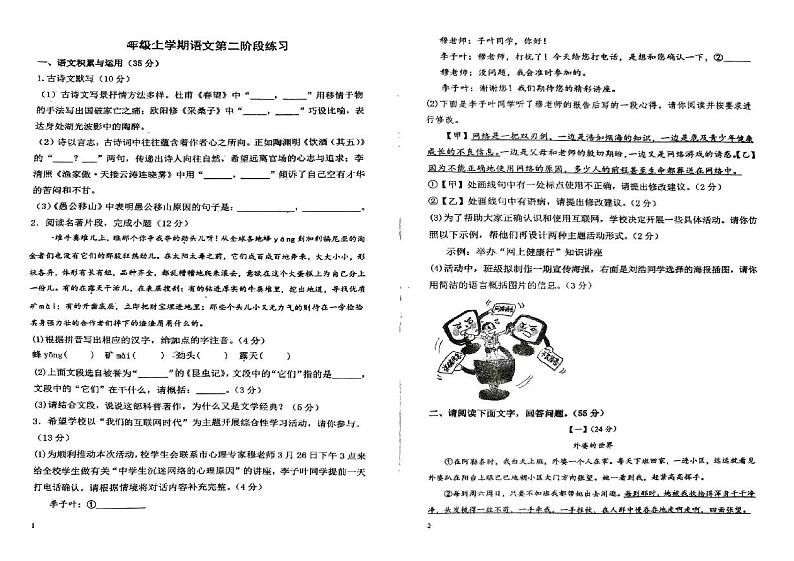 年级上学期语文第二阶段练习
一、语文积累与运用（35分）
1.古诗文默写（10分）
（1）古诗文写景抒情方法多样。杜甫《春望》中“_____，_____”用移情于物
的手法写出国破家亡之痛；欧阳修《采桑子》中“_____，_____”巧设比喻，表
达身处湖光波影中的陶醉。
（2）诗以言志，古诗词中往往蕴含着作者心之所向。正如陶渊明《饮酒（其五）》
的“____？____”两句，传递出诗人向往自然，希望远离官场的心志与追求；李
清照《渔家傲·天接云涛连晓雾》中用“______，______”倾诉了自己空有才华
的苦闷和不甘。
（3）《愚公移山》中表明愚公移山原因的句子是：________，________。
2．阅读名著片段，完成小题（12分）
一堆牛粪堆儿上，谁那个你争我夺的劲头儿呀！从全球各地蜂yōng到加利福尼亚的淘
金者们也没有它们的那股狂热劲儿。在太阳太毒之前，它们成百成千地来到这里，大大小小，形
状各异，体形有长有短，品种齐全，都乱糟糟地爬来滚去，意欲在这个大蛋糕上为自己分上
一份儿。有的在露天干活儿，在表层搜刮；有的钻进厚实的牛粪堆里，挖出地道，寻找优质
矿mài；有的开掘底层，立即把财宝埋进地里；那些个头儿小又无力气的则待在一旁捡拾
其强有力的合作者们掉下的渣渣屑屑什么的。
(1)根据拼音写出相应的汉字，给加点的字注音。（4分）
蜂yōng( ) 矿mài( ) 劲头( ) 露天( )
(2)上面文段选自被誉为“______”的《昆虫记》，文段中的“它们”指的是______，
文段中的“它们”在干什么，请概括：______。（3分）
(3)请结合文段，说说这部科普著作，为什么又是文学经典？（5分）
3．希望学校以“我们的互联网时代”为主题开展综合性学习活动，请你参与。
（13分）
(1)为顺利推动本次活动，校学生会联系市心理专家穆老师3月26日下午3点来
给全校学生做有关“中学生沉迷网络的心理原因”的讲座，李子叶同学提前一天
打电话确认，请根据情境将对话内容补充完整。（4分）
李子叶：①__________
1
穆老师：子叶同学，你好！
李子叶：穆老师，打扰了！今天给您打电话，是想和您确认一下，②________
穆老师：没问题，我会准时参加的。
李子叶：谢谢您！我们期待您的精彩讲座。
(2)下面是李子叶同学听了穆老师的报告后写的一段心得，请你阅读并按要求进
行修改。
【甲】网络是一把双刃剑，一边是浩如烟海的知识，一边是危及青少年健康
成长的不良信息。一边是父母和老师的殷切期盼，一边又是网络游戏的诱惑。【乙】
因为不能正确地使用网络的原因，多少人的前程甚至生命都葬送在网络中。
①【甲】处画线句中有一处标点使用不正确，请提出修改建议。（2分）
②【乙】处画线句中有语病，请提出修改建议。（2分）
(3)为了帮助大家正确认识和使用互联网，学校决定开展一些具体活动。请你仿
照以下示例，帮他们再设计两种主题活动形式。（2分）
示例：举办“网上健康行”知识讲座
(4)活动中，班级拟制作一期宣传海报，右面是刘浩同学选择的海报插图，请你
用简洁的语言概括图片的信息。（3分）
二、请阅读下面文字，回答问题。（55分）
【一】（24分）
外婆的世界
①在阿勒泰时，我白天上班，外婆一个人在家。每天下班回家，一进小区，远远就看见
外婆趴在阳台上眼巴巴地朝小区大门方向张望。她一看到我，赶紧高高挥手。
②每到周六周日，只要不加班我都带她出去闲逛。每到那时，她被我收拾得浑身干干净
净，头发梳得一丝不苟，一手牵我，一手拄杖，在人群中慢吞吞地走啊走啊，四面张望。
2